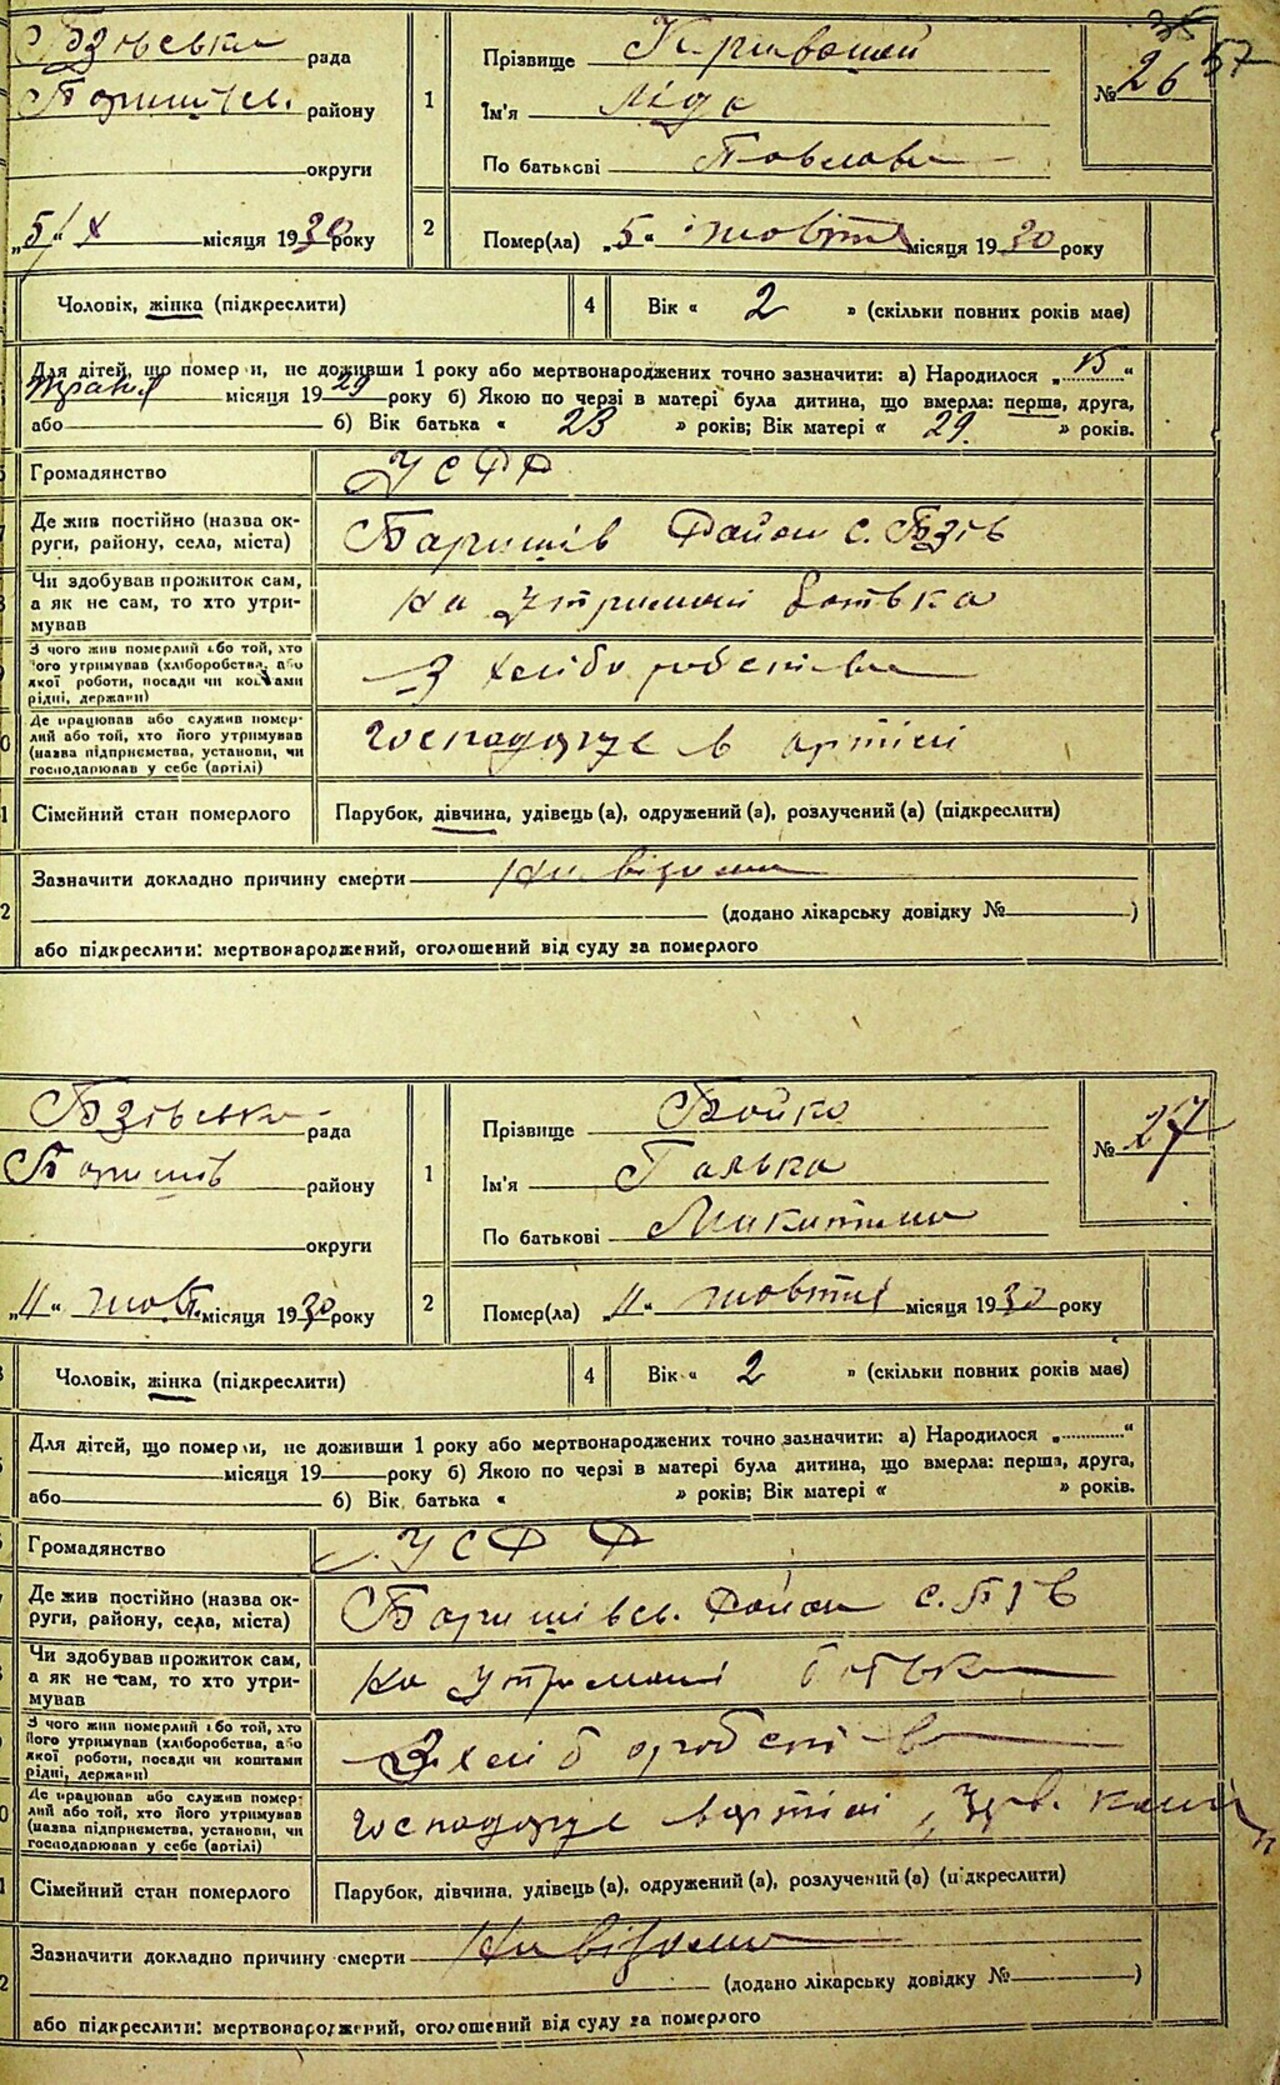 35 57
Бзівська рада
Баришівсь. району
округи
„5/“ X місяця 1930 року
1
Прізвище Кривошей
Ім'я Ліда
По батькові Павловна
№ 26
2
Помер(ла) „5“ жовтня місяця 1930 року
Чоловік, жінка (підкреслити)
4
Вік « 2 » (скільки повних років має)
Для дітей, що померли, не доживши 1 року або мертвонароджених точно зазначити: а) Народилося „15“
травня місяця 1929 року б) Якою по черзі в матері була дитина, що вмерла: перша, друга,
або б) Вік батька « 23 » років; Вік матері « 29. » років.
Громадянство УСРР
Де жив постійно (назва ок-
руги, району, села, міста) Баришів Район с. Бзів
Чи здобував прожиток сам,
а як не сам, то хто утри-
мував На утримані батька
З чого жив померлий або той, хто
його утримував (хліборобства, або
якої роботи, посади чи коштами
рідні, держави) З хліборобства
Де працював або служив помер-
лий або той, хто його утримував
(назва підприємства, установи, чи
господарював у себе (артілі) господарує в артілі
Сімейний стан померлого Парубок, дівчина, удівець (а), одружений (а), розлучений (а) (підкреслити)
Зазначити докладно причину смерти Не відома
(додано лікарську довідку № )
або підкреслити: мертвонароджений, оголошений від суду за померлого
Бзівська рада
Баришів району
округи
„11“ жовт. місяця 1930 року
1
Прізвище Бойко
Ім'я Галька
По батькові Микитина
№ 27
2
Помер(ла) „11“ жовтня місяця 1930 року
Чоловік, жінка (підкреслити)
4
Вік « 2 » (скільки повних років має)
Для дітей, що померли, не доживши 1 року або мертвонароджених точно зазначити: а) Народилося „ “
місяця 19 року б) Якою по черзі в матері була дитина, що вмерла: перша, друга,
або б) Вік батька « » років; Вік матері « » років.
Громадянство УСРР
Де жив постійно (назва ок-
руги, району, села, міста) Баришівсь. Район с. Бзів
Чи здобував прожиток сам,
а як не сам, то хто утри-
мував На утримані батька
З чого жив померлий або той, хто
його утримував (хліборобства, або
якої роботи, посади чи коштами
рідні, держави) З хліборобства
Де працював або служив помер-
лий або той, хто його утримував
(назва підприємства, установи, чи
господарював у себе (артілі) господарує в артілі
Сімейний стан померлого Парубок, дівчина, удівець (а), одружений (а), розлучений (а) (підкреслити)
Зазначити докладно причину смерти Не відома
(додано лікарську довідку № )
або підкреслити: мертвонароджений, оголошений від суду за померлого